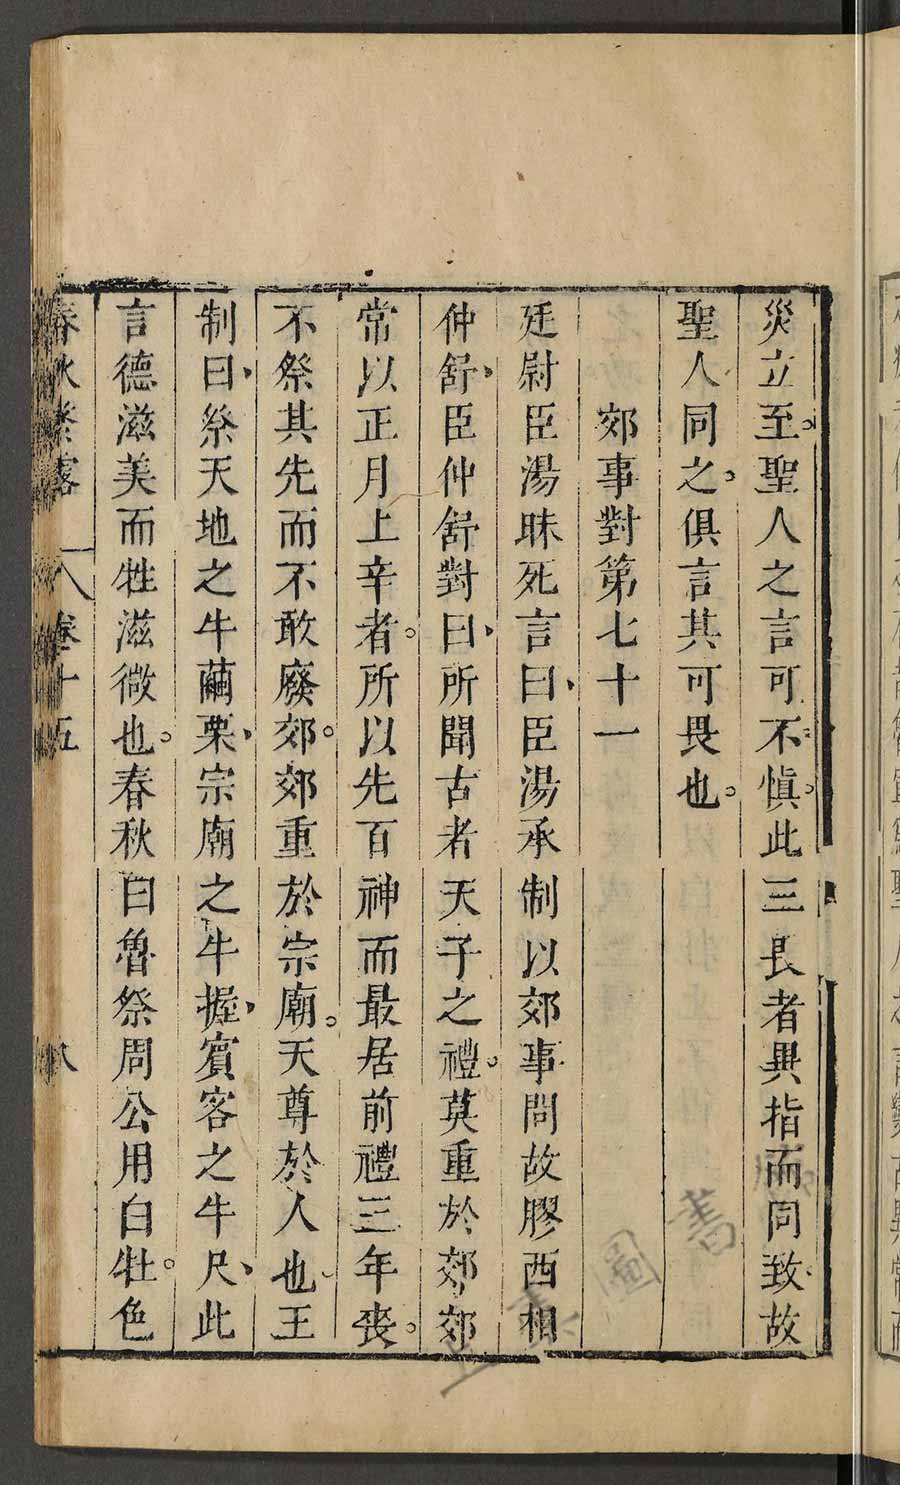 災立至。聖人之言可不慎。此三畏者異指而同致、故
聖人同之。俱言其可畏也。
郊事對第七十一
廷尉臣湯昧死言曰、臣湯承制以郊事問故膠西相
仲舒、臣仲舒對曰、所聞古者天子之禮。莫重於郊郊
常以正月上辛者。所以先百神而最居前禮三年喪。
不祭其先而不敢廢郊。郊重於宗廟。天尊於人也、王
制曰、祭天地之牛繭栗、宗廟之牛握、賓客之牛尺、此
言德滋美而牲滋微也。春秋曰魯祭周公用白牡。色
春秋繁露 卷十五 八